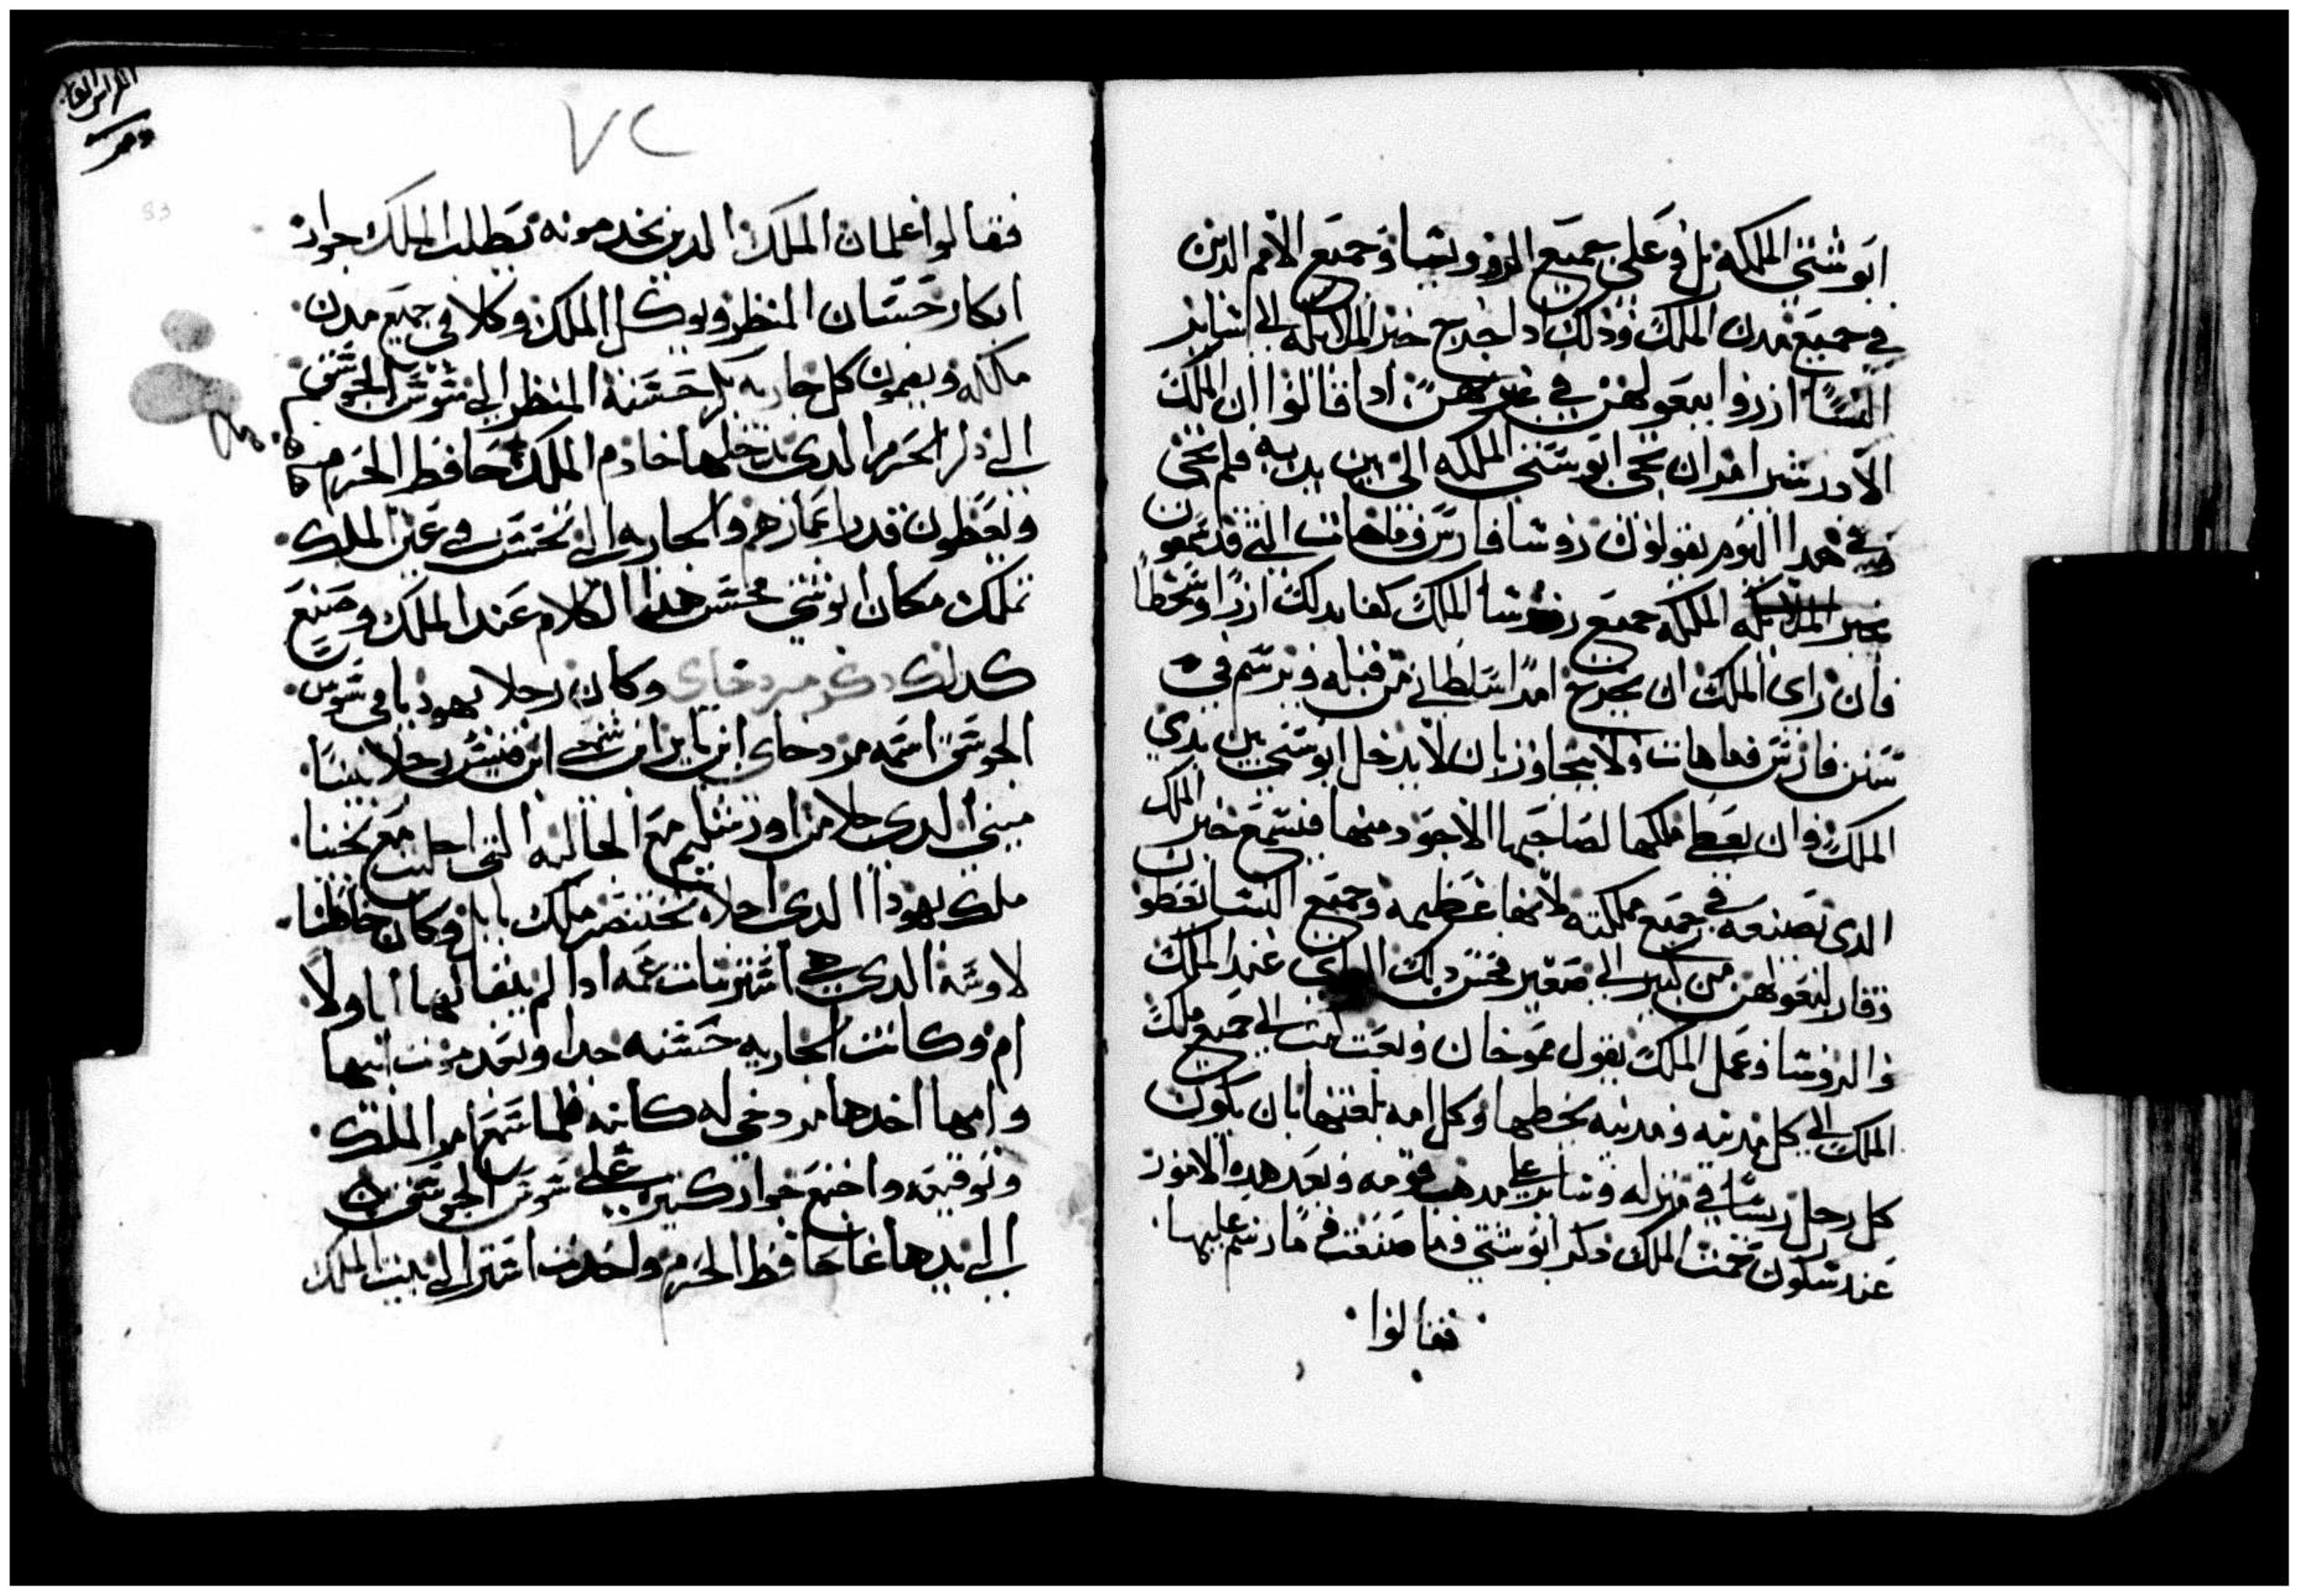 ابوشتي الملكه بل وعلى جميع الروونسا وجميع الامم الدين
في جميع مدن الملك وذلك ادا خرج خبر الملكه الى ساير
النسا ازروا ببعولهن في عيونهن ادا قالوا ان الملك
الاورشير امر ان تجي ابوشتي الملكه الى بين يديه فلم تجي
هدا اليوم يقولون روسا فارس وماهات التي قد سمعون
خبر الملكه جميع روسا الملك كفا بدلك ازرا وسخطا
فان راى الملك ان يخرج امرا سلطاني من قبله ويرسم في
سنن فارس وماهات ولا يتجاوز بان لا يدخل ابوشتي بين يدي
الملك وان يعطى ملكها لصاحبها الاجود منها فيسمع خبر الملك
الدى تصنعه في جميع مملكته لانها عظيمه وجميع النسا تعطون
وقار لبعولهن من كبير الى صغير فحسن دلك الراى عند الملك
والروسا وعمل الملك بقول موخان وبعث كتب الى جميع ملك
الملك الى كل مدينه ومدينه بخطها وكل امه بلغتها بان يكون
كل رجل ريسا في منزله وساير على مدهب قومه وبعد هده الامور
عند سكون حمت الملك دكر ابوشتي وما صنعت وما رسم عليها
فقالوا
المراس القا
٧٢
83
فقالوا غلمان الملك الدين يخدمونه تطلب للملك جوار
ابكار حسان المنظر ويوكل الملك وكلا في جميع مدن
ملكه ويضمون كل جاريه بكر حسنة المنظر الى شوش الجوشق
الى دار الحرم الدى يدخلها خادم الملك حافظ الحرم
ويعطون قدر اعمازهم والجاريه التي تحسن في عين الملك
تملك مكان ابوشتي فحسن هدا الكلام عند الملك وصنع
كدلك دكر مردخاى وكان رجلا يهوديا في شوش
الجوشق اسمه مردخاى ابن ياير ابن شمعي ابن قيش رجلا
الدى جلا من اورشليم مع الجاليه التي اجليت مع يخنيا
ملك يهودا الدى اجلاه بختنصر ملك بابل وكان حافظا
لاوسه الدى هي استير بنات عمه ادا لم يتقا لها ابا ولا
ام وكانت الجاريه حسنه جدا وبعد موت ابيها
وامها اخدها مردخي له كابنه فلما سمع امر الملك
وتوقيعه واجتمع جوار كثيره على شوش الجوشق
الى يد هاغاى حافظ الحرم واخدت استر الى بيت الملك